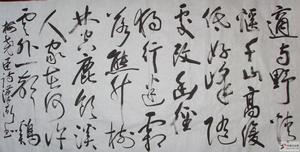 適与野情
愜千山高復
低好峰隨
處改幽徑
獨行迷霜
落熊升樹
林空鹿飲溪
人家在何許
雲外一聲鷄
梅堯臣詩